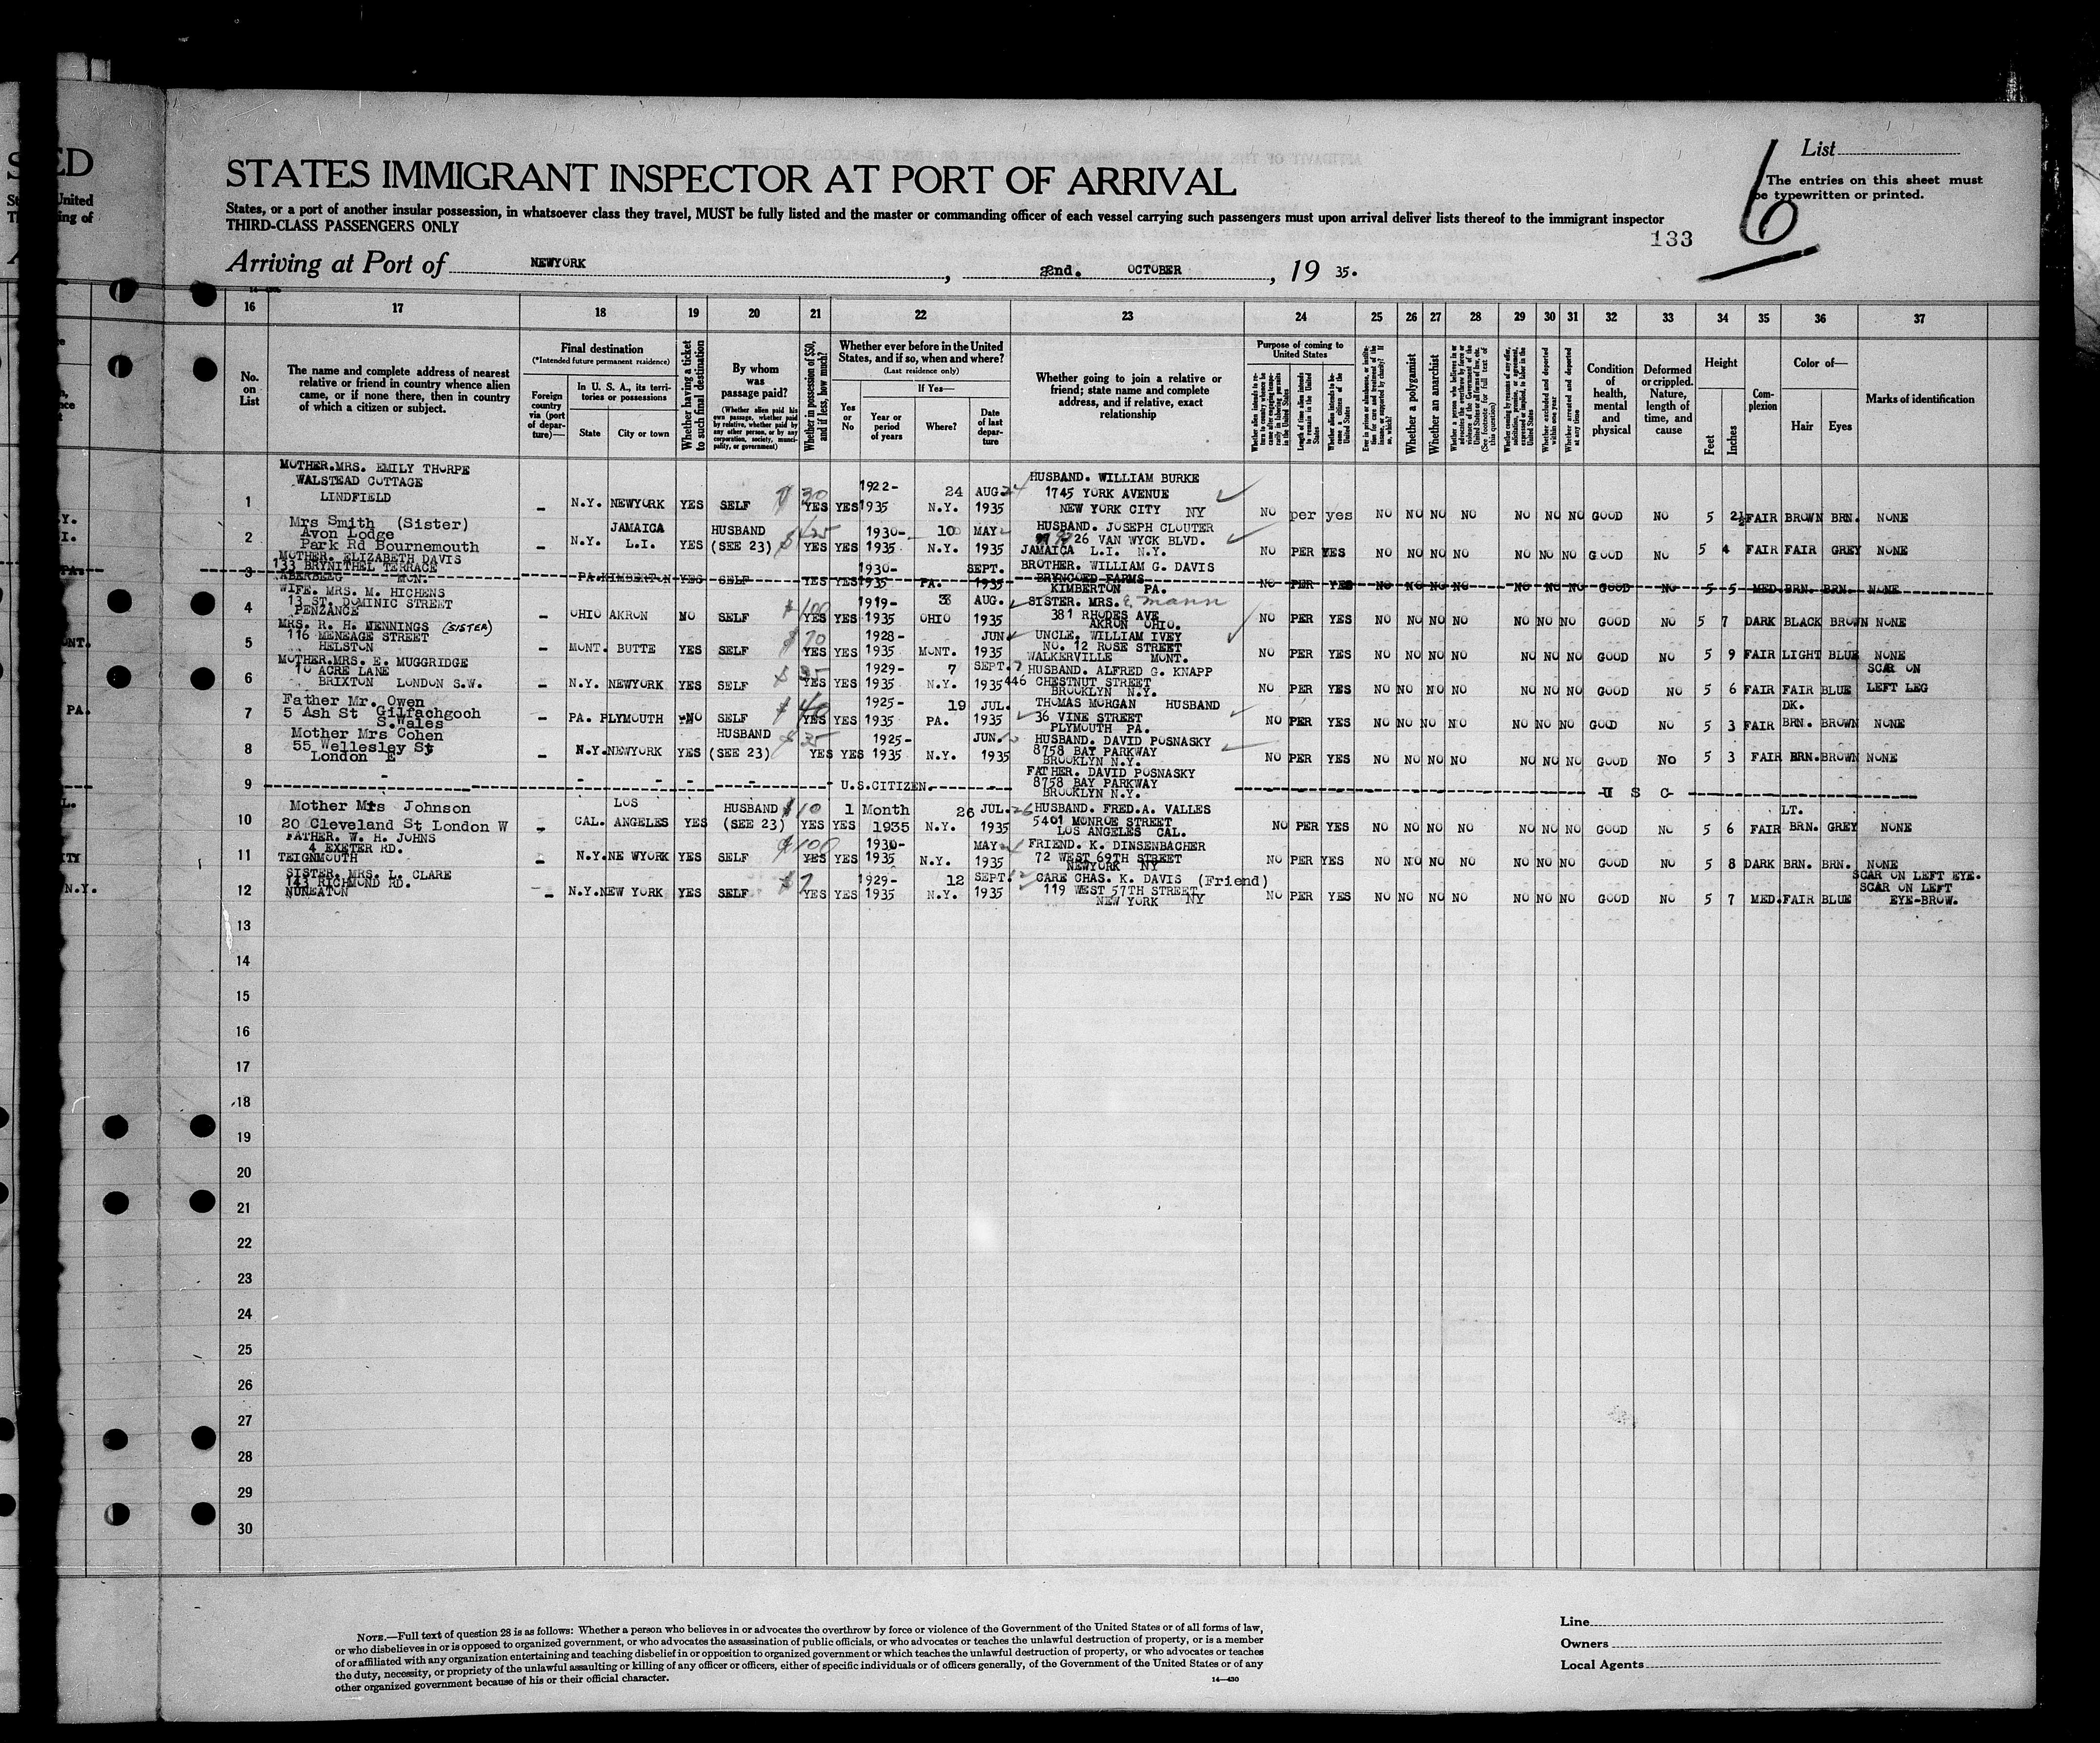 SED
United
ing of
STATES IMMIGRANT INSPECTOR AT PORT OF ARRIVAL
States, or a port of another insular possession, in whatsoever class they travel, MUST be fully listed and the master or commanding officer of each vessel carrying such passengers must upon arrival deliver lists thereof to the immigrant inspector
THIRD-CLASS PASSENGERS ONLY
List
The entries on this sheet must
be typewritten or printed.
6
133
Arriving at Port of NEWYORK, 2nd. OCTOBER, 19 35.
16 17 18 19 20 21 22 23 24 25 26 27 28 29 30 31 32 33 34 35 36 37
No. on List
The name and complete address of nearest relative or friend in country whence alien came, or if none there, then in country of which a citizen or subject.
Final destination
(*Intended future permanent residence)
Foreign country via (port of departure)—
In U. S. A., its territories or possessions
State
City or town
Whether having a ticket to such final destination
By whom was passage paid?
(Whether alien paid his own passage, whether paid by relative, whether paid by any other person, or by any corporation, society, municipality, or government)
Whether in possession of $50, and if less, how much?
Whether ever before in the United States, and if so, when and where?
(Last residence only)
Yes or No
If Yes—
Year or period of years
Where?
Date of last departure
Whether going to join a relative or friend; state name and complete address, and if relative, exact relationship
Purpose of coming to United States
Length of time alien intends to remain in the United States
Whether alien intends to become a citizen of the United States
Whether a polygamist
Whether an anarchist
Whether excluded and deported within one year
Whether arrested and deported at any time
Condition of health, mental and physical
Deformed or crippled. Nature, length of time, and cause
Height
Feet
Inches
Complexion
Color of—
Hair
Eyes
Marks of identification
MOTHER.MRS. EMILY THORPE
WALSTEAD COTTAGE
LINDFIELD
1 – N.Y. NEWYORK YES SELF 30 YES YES 1922-1935 24 N.Y. AUG 24 1935 HUSBAND. WILLIAM BURKE
1745 YORK AVENUE
NEW YORK CITY NY
NO per yes NO NO NO NO NO NO NO GOOD NO 5 2½ FAIR BROWN BRN. NONE
Mrs Smith (Sister)
Avon Lodge
Park Rd Bournemouth
2 – N.Y. JAMAICA L.I. YES HUSBAND (SEE 23) YES YES 1930-1935 10 N.Y. MAY 1935 HUSBAND. JOSEPH CLOUTER
26 VAN WYCK BLVD.
JAMAICA L.I. N.Y.
NO PER YES NO NO NO NO NO NO NO GOOD NO 5 4 FAIR FAIR GREY NONE
MOTHER. ELIZABETH DAVIS
133 BRYNITHEL TERRACE
ABERBEEG MON.
3 PA. KIMBERTON YES SELF YES YES 1930-1935 PA. SEPT. 1935 BROTHER. WILLIAM G. DAVIS
BRYNCOED FARMS
KIMBERTON PA.
NO PER YES NO NO NO NO NO NO NO GOOD NO 5 5 MED. BRN. BRN. NONE
WIFE. MRS. M. HICHENS
13 ST. DOMINIC STREET
PENZANCE
4 – OHIO AKRON NO SELF $100 YES YES 1919-1935 OHIO AUG. 1935 SISTER. MRS. E. Mann
381 RHODES AVE
AKRON OHIO.
NO PER YES NO NO NO NO NO NO NO GOOD NO 5 7 DARK BLACK BROWN NONE
MRS. R. H. JENNINGS (SISTER)
116 MENEAGE STREET
HELSTON
5 – MONT. BUTTE YES SELF $70 YES YES 1928-1935 MONT. JUN 1935 UNCLE. WILLIAM IVEY
NO. 12 ROSE STREET
WALKERVILLE MONT.
NO PER YES NO NO NO NO NO NO NO GOOD NO 5 9 FAIR LIGHT BLUE NONE
MOTHER.MRS. E. MUGGRIDGE
10 ACRE LANE
BRIXTON LONDON S.W.
6 – N.Y. NEWYORK YES SELF YES YES 1929-1935 7 N.Y. SEPT. 7 1935 HUSBAND. ALFRED G. KNAPP
446 CHESTNUT STREET
BROOKLYN N.Y.
NO PER YES NO NO NO NO NO NO NO GOOD NO 5 6 FAIR FAIR BLUE SCAR ON LEFT LEG
Father Mr. Owen
5 Ash St Gilfachgoch
S.Wales
7 – PA. PLYMOUTH NO SELF $40 YES YES 1925-1935 19 PA. JUL. 1935 THOMAS MORGAN HUSBAND
36 VINE STREET
PLYMOUTH PA.
NO PER YES NO NO NO NO NO NO NO GOOD NO 5 3 FAIR DK. BRN. BROWN NONE
Mother Mrs Cohen
55 Wellesley St
London E
8 – N.Y. NEWYORK YES HUSBAND (SEE 23) $35 YES YES 1925-1935 N.Y. JUN. 1935 HUSBAND. DAVID POSNASKY
8758 BAY PARKWAY
BROOKLYN N.Y.
NO PER YES NO NO NO NO NO NO NO GOOD NO 5 3 FAIR BRN. BROWN NONE
9 U.S.CITIZEN. FATHER. DAVID POSNASKY
8758 BAY PARKWAY
BROOKLYN N.Y.
U S C
Mother Mrs Johnson
20 Cleveland St London W
10 – CAL. LOS ANGELES YES HUSBAND (SEE 23) $10 YES YES 1 Month 1935 26 N.Y. JUL. 26 1935 HUSBAND. FRED.A. VALLES
5401 MONROE STREET
LOS ANGELES CAL.
NO PER YES NO NO NO NO NO NO NO GOOD NO 5 6 FAIR LT. BRN. GREY NONE
FATHER. W. H. JOHNS
4 EXETER RD.
TEIGNMOUTH
11 – N.Y. NE WYORK YES SELF $100 YES YES 1930-1935 N.Y. MAY 1935 FRIEND. K. DINSENBACHER
72 WEST 69TH STREET
NEWYORK NY
NO PER YES NO NO NO NO NO NO NO GOOD NO 5 8 DARK BRN. BRN. NONE
SISTER. MRS. L. CLARE
143 RICHMOND RD.
NUNEATON
12 – N.Y. NEW YORK YES SELF $7 YES YES 1929-1935 12 N.Y. SEPT. 1935 CARE CHAS. K. DAVIS (Friend)
119 WEST 57TH STREET
NEW YORK NY
NO PER YES NO NO NO NO NO NO NO GOOD NO 5 7 MED. FAIR BLUE SCAR ON LEFT EYE.
SCAR ON LEFT
EYE-BROW.
13
14
15
16
17
18
19
20
21
22
23
24
25
26
27
28
29
30
NOTE.—Full text of question 28 is as follows: Whether a person who believes in or advocates the overthrow by force or violence of the Government of the United States or of all forms of law,
or who disbelieves in or is opposed to organized government, or who advocates the assassination of public officials, or who advocates or teaches the unlawful destruction of property, or is a member
of or affiliated with any organization entertaining and teaching disbelief in or opposition to organized government or which teaches the unlawful destruction of property, or who advocates or teaches
the duty, necessity, or propriety of the unlawful assaulting or killing of any officer or officers, either of specific individuals or of officers generally, of the Government of the United States or of any
other organized government because of his or their official character.
14—430
Line
Owners
Local Agents